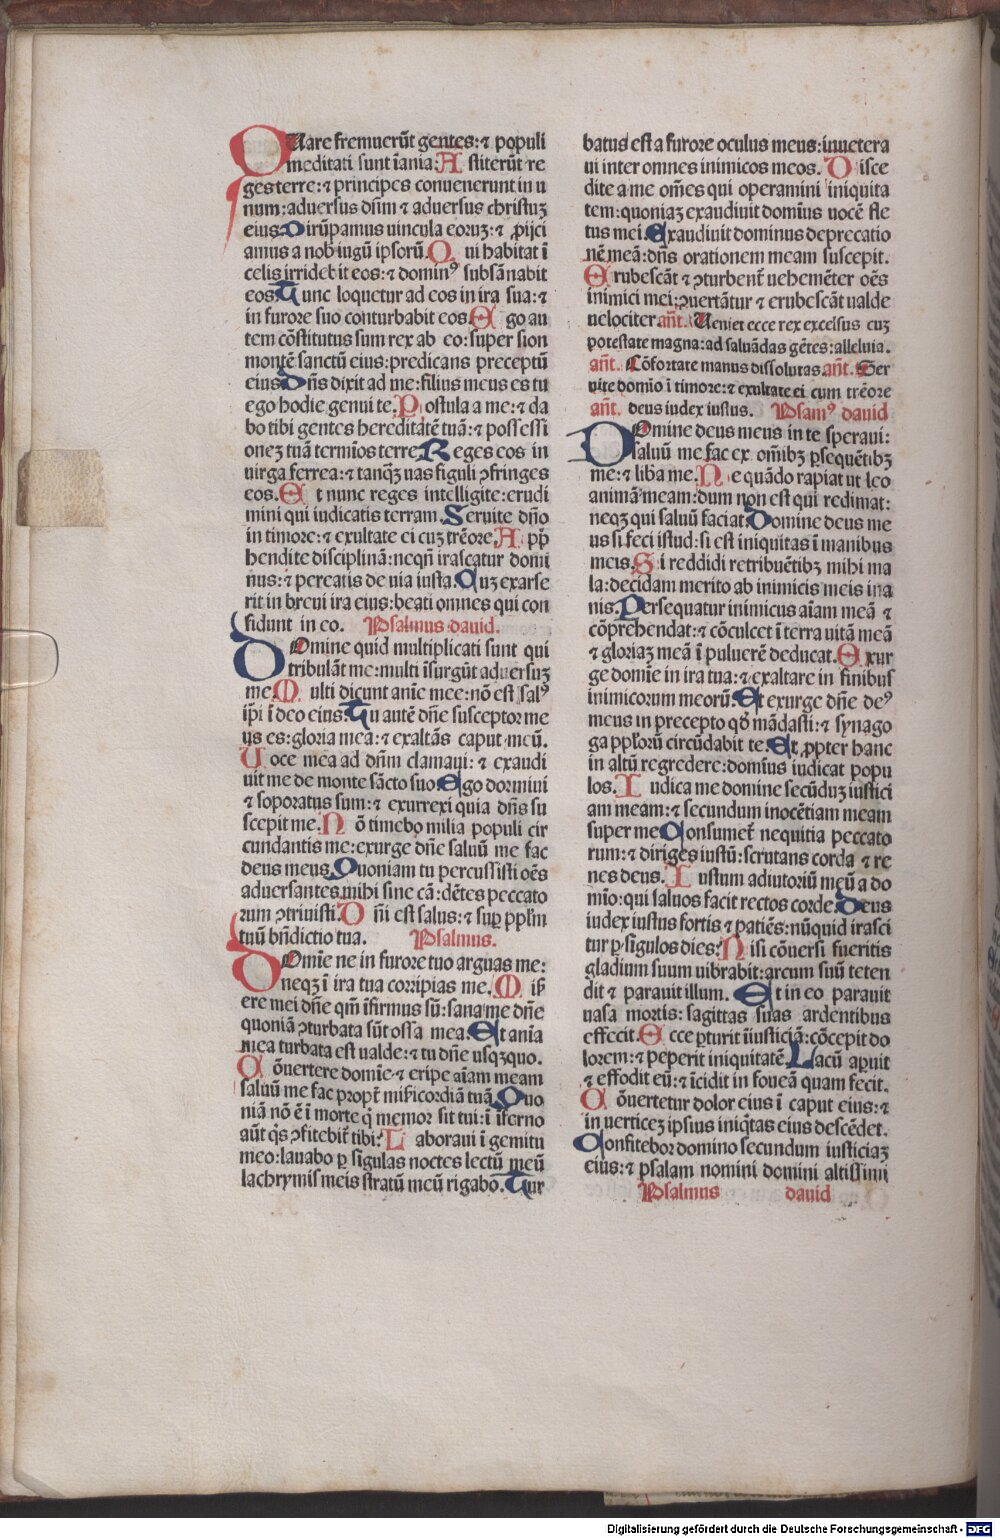 QUare fremuerūt gentes: ⁊ populi
meditati sunt īania: Astiterūt re
ges terre: ⁊ principes conuenerunt in u
num: aduersus dn̄m ⁊ aduersus christuꝫ
eius. Dirūpamus uincula eoruꝫ: ⁊ ꝓijci
amus a nob iugū ipsorū. Qui habitat ī
celis irridebit eos: ⁊ dominꝰ subsānabit
eos. Tunc loquetur ad eos in ira sua: ⁊
in furore suo conturbabit eos. Ego au
tem cōstitutus sum rex ab eo: super sion
montē sanctū eius: predicans preceptū
eius. Dn̄s dixit ad me: filius meus es tu
ego hodie genui te. Postula a me: ⁊ da
bo tibi gentes hereditatē tuā: ⁊ possessi
oneꝫ tuā termīos terre. Reges eos in
uirga ferrea: ⁊ tanqꝫ uas figuli ꝯfringes
eos. Et nunc reges intelligite: erudi
mini qui iudicatis terram. Seruite dn̄o
in timore: ⁊ exultate ei cuꝫ trēore. App̄
hendite disciplinā: neqn̄ irascatur domi
nus: ⁊ pereatis de uia iusta. Cuꝫ exarse
rit in breui ira eius: beati omnes qui con
fidunt in eo. Psalmus dauid.
DOmine quid multiplicati sunt qui
tribulāt me: multi īsurgūt aduersuꝫ
me. Multi dicunt anīe mee: nō est salꝰ
ip̄i ī deo eius. Tu autē dn̄e susceptor me
us es: gloria mea: ⁊ exaltās caput meū.
Uoce mea ad dn̄m clamaui: ⁊ exaudi
uit me de monte sācto suo. Ego dormiui
⁊ soporatus sum: ⁊ exurrexi quia dn̄s su
scepit me. Nō timebo milia populi cir
cundantis me: exurge dn̄e saluū me fac
deus meus. Quoniam tu percussisti oēs
aduersantes mihi sine cā: dētes peccato
rum ꝯtriuisti. Dn̄i est salus: ⁊ suꝑ ppl̄m
tuū bn̄dictio tua. Psalmus.
DOmīe ne in furore tuo arguas me:
neqꝫ ī ira tua corripias me. Mis̄
ere mei dn̄e qm̄ īfirmus sū: sana me dn̄e
quoniā ꝯturbata sūt ossa mea. Et anīa
mea turbata est ualde: ⁊ tu dn̄e usqꝫquo.
Cōuertere domīe ⁊ eripe aīam meam
saluū me fac propt̄ mīsericordiā tuā. Quo
niā nō ē ī morte q̄ memor sit tui: ī īferno
aūt qs̄ ꝯfitebit̄ tibi? Laboraui ī gemitu
meo: lauabo ꝑ sigulas noctes lectū meū
lachrymis meis stratū meū rigabo. Tur
batus est a furore oculus meus: inuetera
ui inter omnes inimicos meos. Disce
dite a me om̄es qui operamini iniquita
tem: quoniaꝫ exaudiuit domīus uocē fle
tus mei. Exaudiuit dominus deprecatio
nē meā: dn̄s orationem meam suscepit.
Erubescāt ⁊ ꝯturbent̄ uehemēter oēs
inimici mei: ꝯuertātur ⁊ erubescāt ualde
uelociter. an̄t. Ueniet ecce rex excelsus cuꝫ
potestate magna: ad saluādas gētes: alleluia.
an̄t. Cōfortate manus dissolutas. an̄t. Ser
uite domīo ī timore: ⁊ exultate ei cum trēore
an̄t. deus iudex iustus. Psamꝰ dauid
DOmine deus meus in te speraui:
saluū me fac ex om̄ibꝫ ꝑsequētibꝫ
me: ⁊ libā me. Ne quādo rapiat ut leo
animā meam: dum non est qui redimat:
neqꝫ qui saluū faciat. Domine deus me
us si feci istud: si est iniquitas ī manibus
meis. Si reddidi retribuētibꝫ mihi ma
la: decidam merito ab inimicis meis ina
nis. Persequatur inimicus aīam meā ⁊
cōprehendat: ⁊ cōculcet ī terra uitā meā
⁊ gloriaꝫ meā ī puluerē deducat. Exur
ge domīe in ira tua: ⁊ exaltare in finibus
inimicorum meorū. Et exurge dn̄e deꝰ
meus in precepto qd̄ mādasti: ⁊ synago
ga ppl̄orū circūdabit te. Et ꝓpter hanc
in altū regredere: domīus iudicat popu
los. Iudica me domine secūduꝫ iustici
am meam: ⁊ secundum inocētiam meam
super me. Consumet̄ nequitia peccato
rum: ⁊ diriges iustū: scrutans corda ⁊ re
nes deus. Iustum adiutoriū meū a do
mīo: qui saluos facit rectos corde. Deus
iudex iustus fortis ⁊ patiēs: nūquid irasci
tur ꝑ sigulos dies? Nisi cōuersi fueritis
gladium suum uibrabit: arcum suū teten
dit ⁊ parauit illum. Et in eo parauit
uasa mortis: sagittas suas ardentibus
effecit. Ecce ꝑturit īiusticiā: cōcepit do
lorem: ⁊ peperit iniquitatē. Lacū aꝑuit
⁊ effodit eū: ⁊ īcidit in foueā quam fecit.
Cōuertetur dolor eius ī caput eius: ⁊
in uerticeꝫ ipsius iniq̄tas eius descēdet.
Confitebor domino secundum iusticiaꝫ
eius: ⁊ psalam nomini domini altissimi
Psalmus dauid
Digitalisierung gefördert durch die Deutsche Forschungsgemeinschaft - DFG